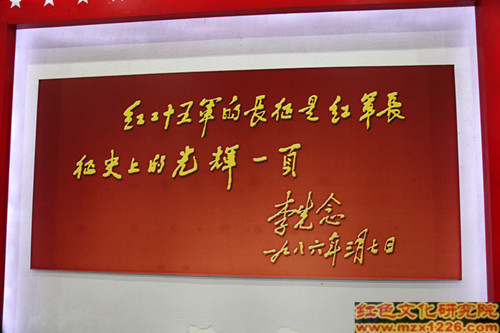 红二十五军的長征是红军長
征史上的光輝一頁
李先念
一九八六年三月七日
红色文化研究院
www.mzx1226.com